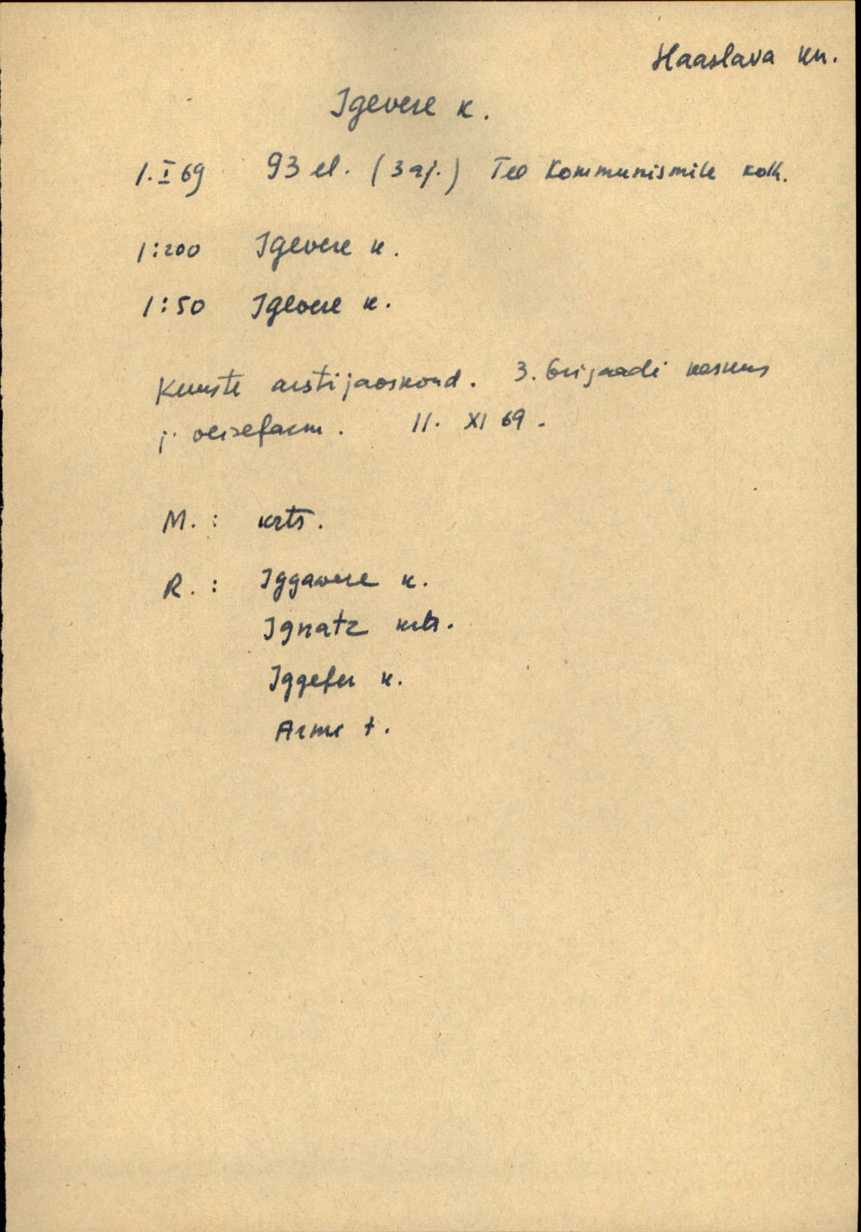 Haaslava kn.
Igevere k.
1. I 69 93 el. (3 aj.) Tee Kommunismile kolh.
1:200 Igevere k.
1:50 Igevere k.
Kuuste arstijaoskond. 3. brigaadi keskus
j. veisefarm. 11. XI 69.
M.: krts.
R.: Iggawere k.
Ignatz krts.
Iggefer k.
Arme t.